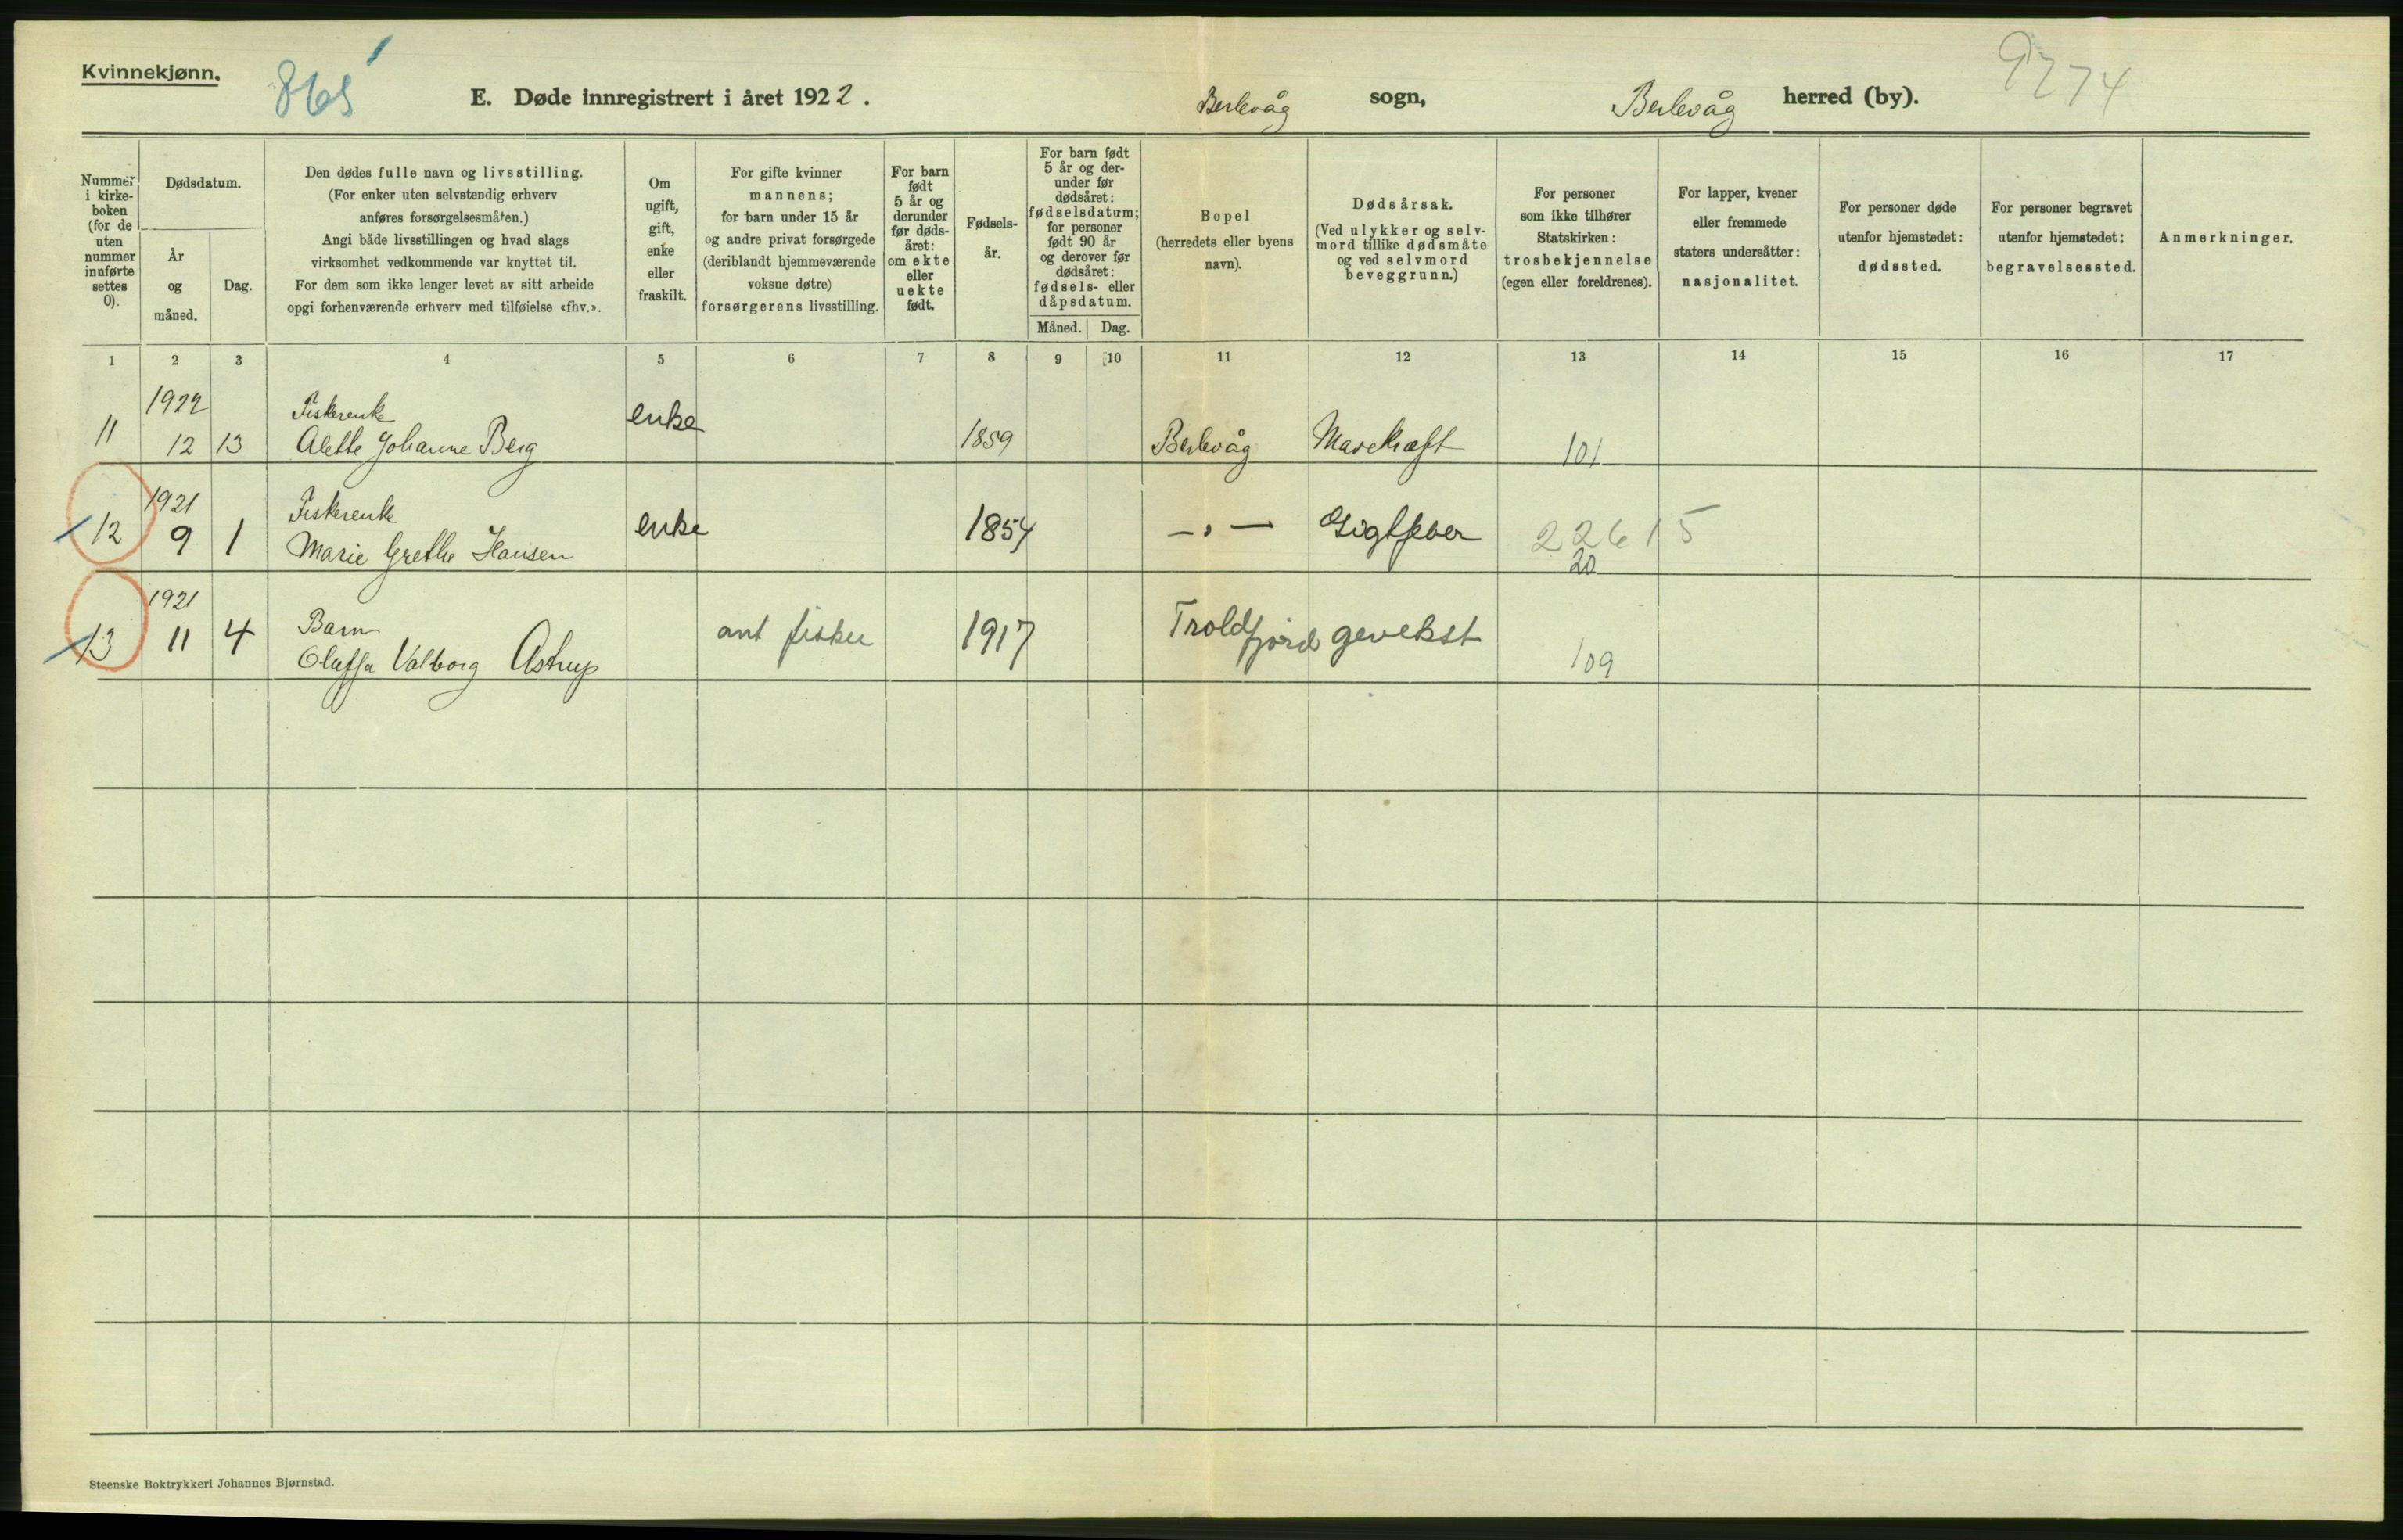 Kvinnekjønn.
865
E. Døde innregistrert i året 1922.
Berlevåg sogn, Berlevåg herred (by).
9274
Nummer i kirkeboken (for de uten nummer innførte settes 0).
Dødsdatum.
År og måned.
Dag.
Den dødes fulle navn og livsstilling.
(For enker uten selvstendig erhverv
anføres forsørgelsesmåten.)
Angi både livsstillingen og hvad slags
virksomhet vedkommende var knyttet til.
For dem som ikke lenger levet av sitt arbeide
opgi forhenværende erhverv med tilføielse «fhv.».
Om
ugift,
gift,
enke
eller
fraskilt.
For gifte kvinner
mannens;
for barn under 15 år
og andre privat forsørgede
(deriblandt hjemmeværende
voksne døtre)
forsørgerens livsstilling.
For barn
født
5 år og
derunder
før døds-
året:
om ekte
eller
uekte
født.
Fødsels-
år.
For barn født
5 år og der-
under før
dødsåret:
fødselsdatum;
for personer
født 90 år
og derover før
dødsåret:
fødsels- eller
dåpsdatum.
Måned. Dag.
Bopel
(herredets eller byens
navn).
Dødsårsak.
(Ved ulykker og selv-
mord tillike dødsmåte
og ved selvmord
beveggrunn.)
For personer
som ikke tilhører
Statskirken:
trosbekjennelse
(egen eller foreldrenes).
For lapper, kvener
eller fremmede
staters undersåtter:
nasjonalitet.
For personer døde
utenfor hjemstedet:
dødssted.
For personer begravet
utenfor hjemstedet:
begravelsessted.
Anmerkninger.
1 2 3 4 5 6 7 8 9 10 11 12 13 14 15 16 17
1922 Fiskerenke
11 12 13 Alette Johanne Berg enke 1859 Berlevåg Mavekræft 101
1921 Fiskerenke
12 9 1 Marie Grethe Hansen enke 1854 —„— Gigtfeber 22615
20
1921 Barn
13 11 4 Oluffa Valborg Astrup ant fisker 1917 Troldfjord gevekst 109
Steenske Boktrykkeri Johannes Bjørnstad.